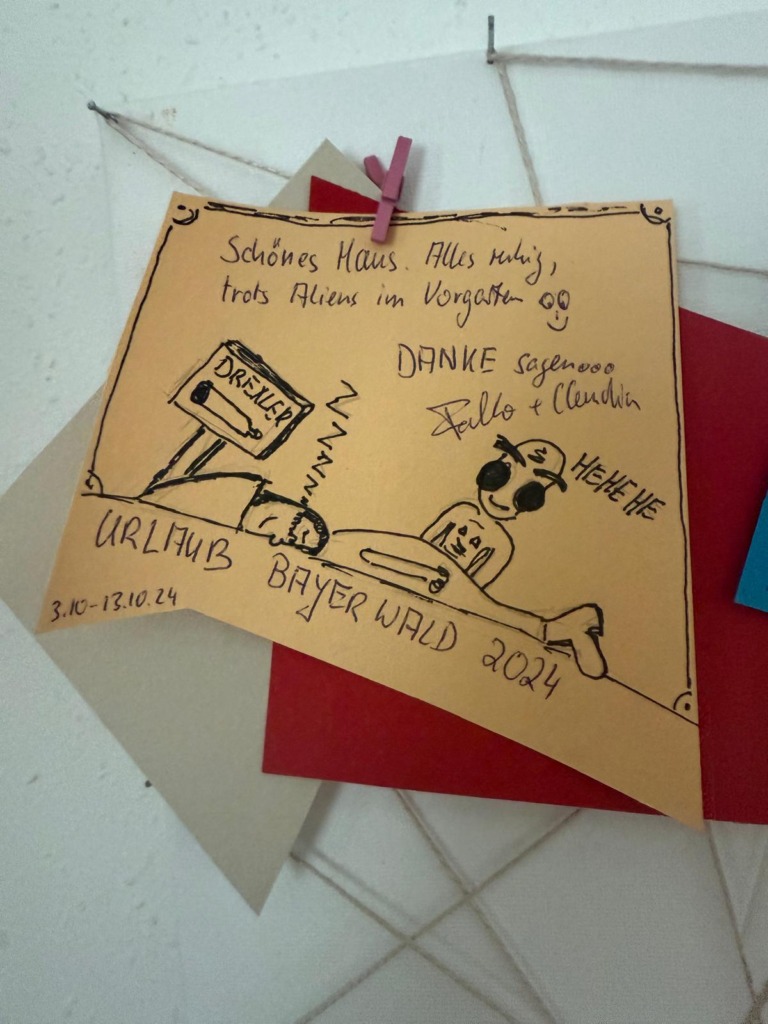 Schönes Haus. Alles ruhig,
trots Aliens im Vorgarten
DANKE sagen...
Falko + Claudia
DREXLER
ZZZZZZ
HEHEHE
URLAUB BAYERWALD 2024
3.10-13.10.24